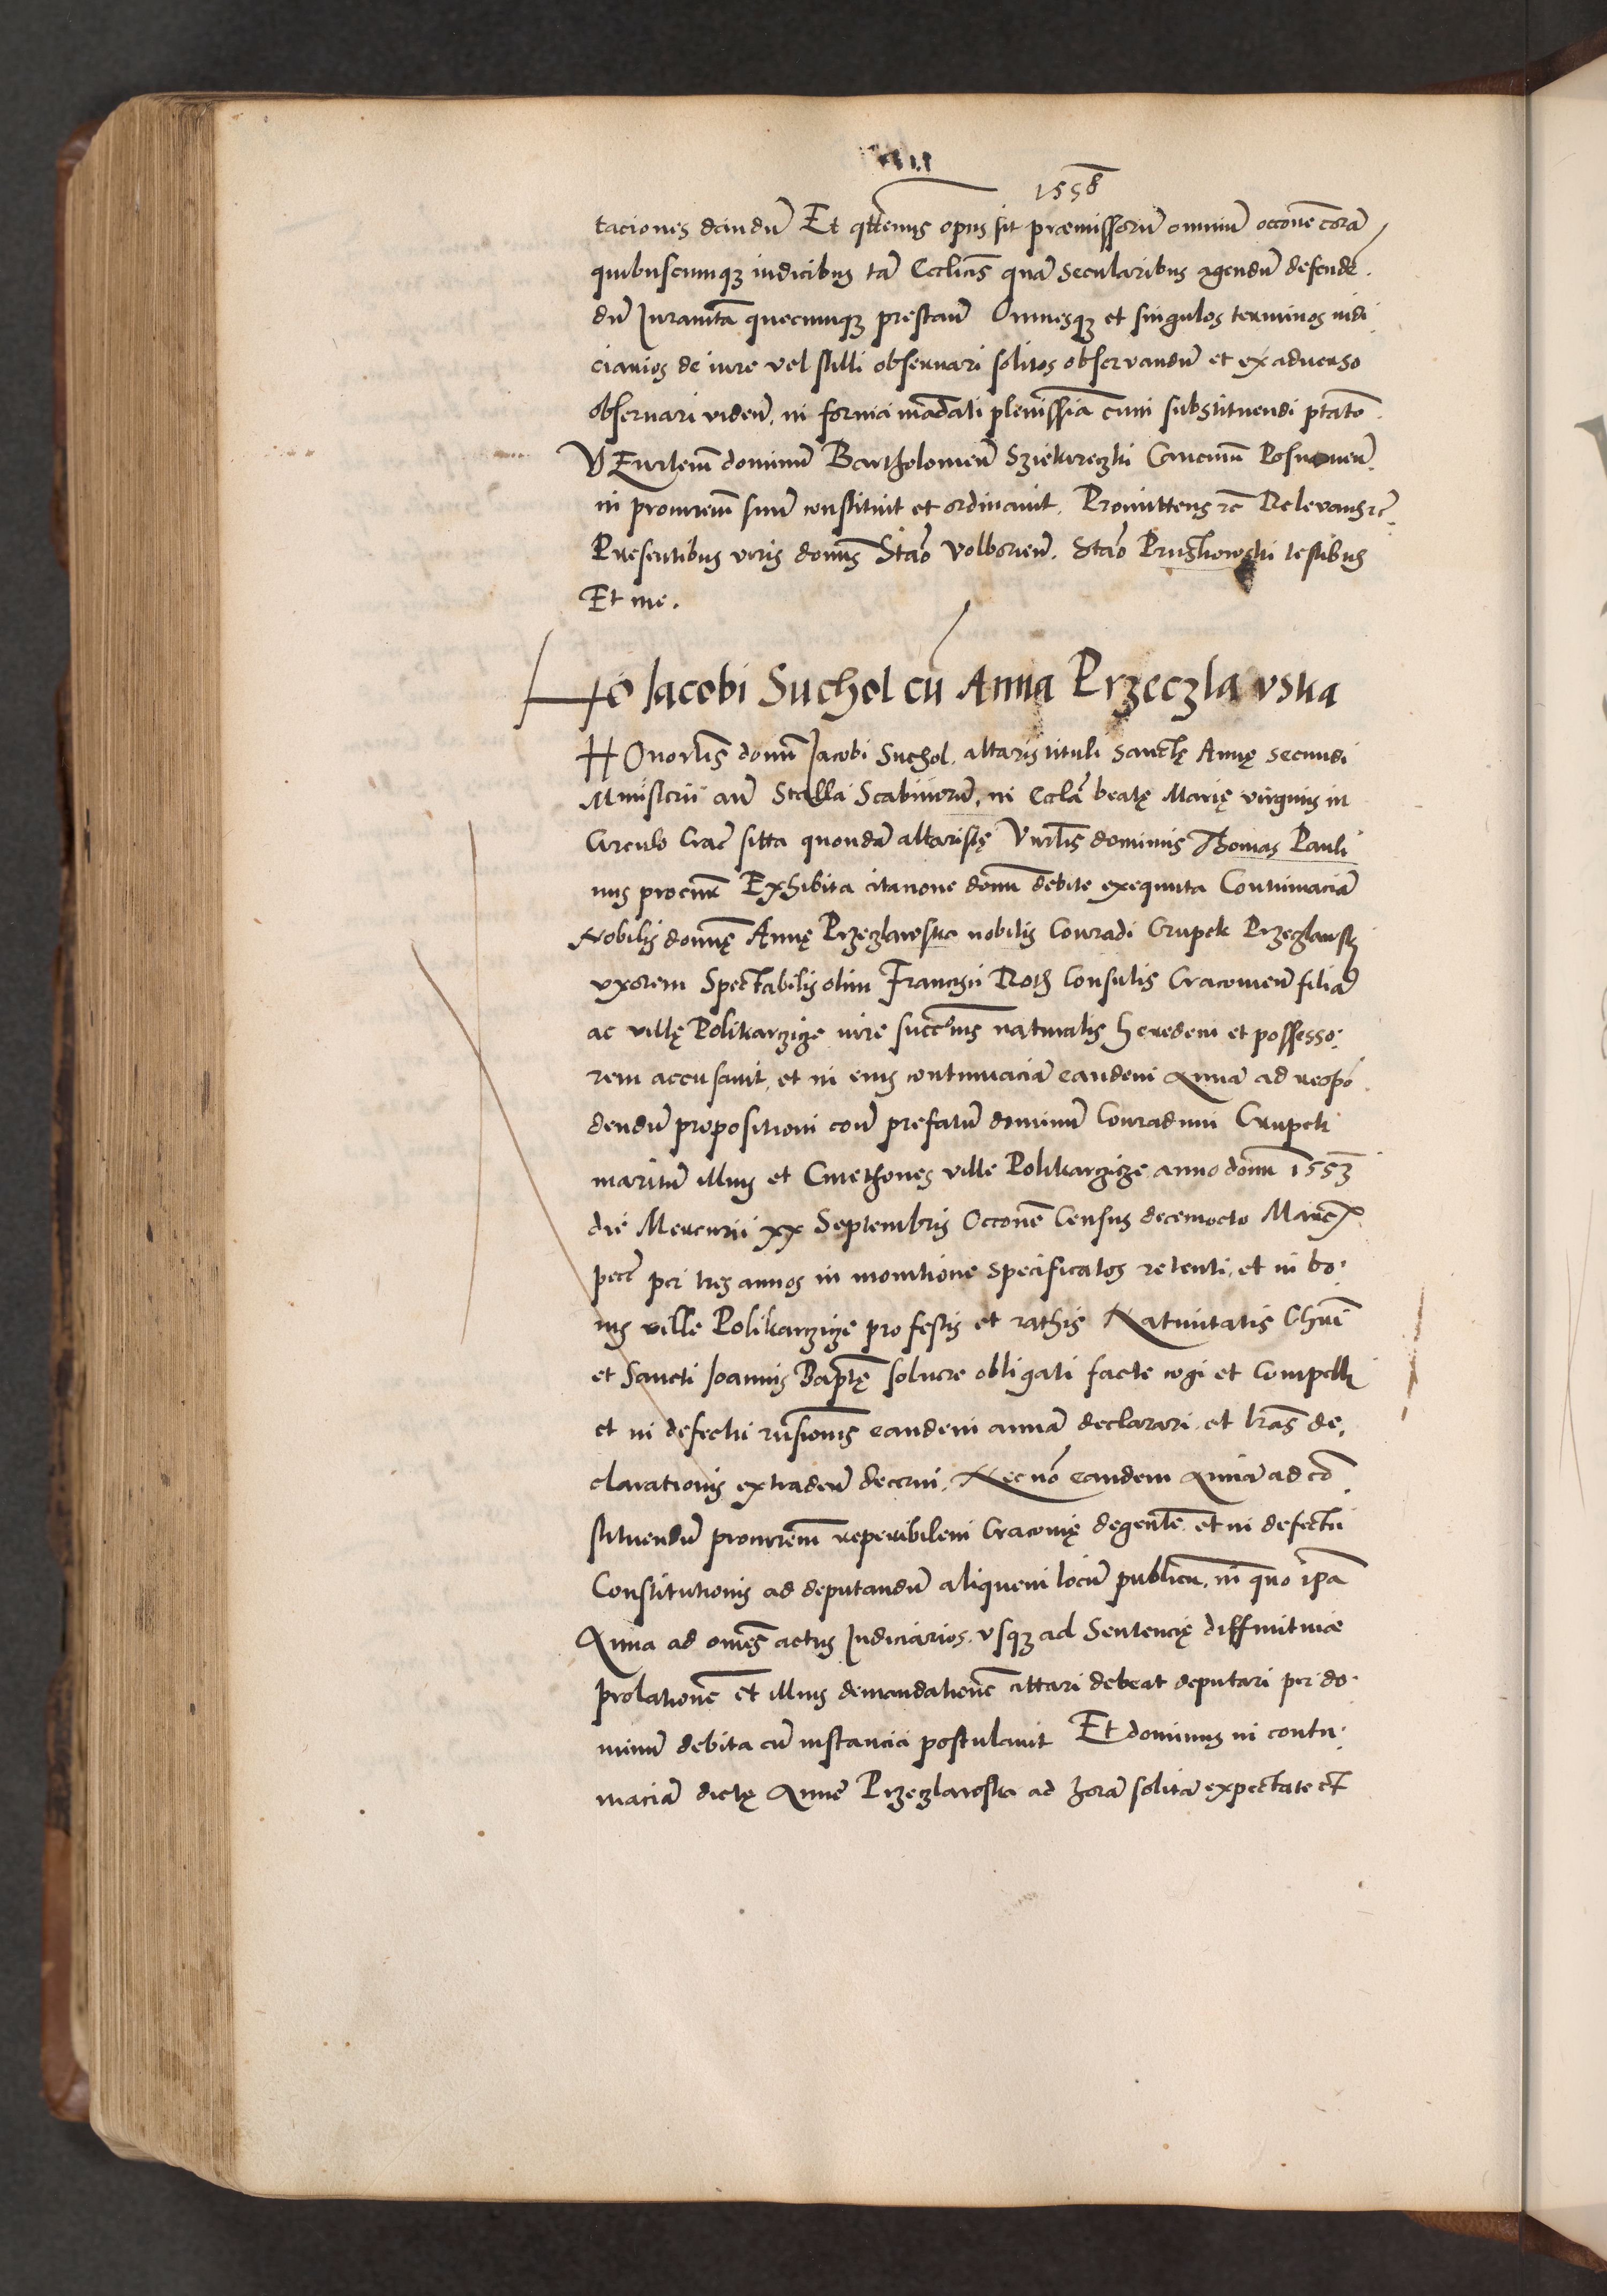 1558
taciones dandū Et qtenus opus sit præmissorū omniū occōne corā
quibuscumqz iudicibus tā Ecclicis quā secularibus agendū defendē
dū Iuramtā quecumqz prestarū Omnesqz et singulos terminos iudi
ciarios de iure vel stilli obseruari solitos observandū et ex aduerso
obseruari viden̄. in forma mādati plenissīa cum substituendi ptāto
V Enrlem̄ dominū Bartholomeū Canonicū Posnanien̄
in procurem̄ suum constituit et ordinauit. Promittens rc̄ Relevans rc̄
Presentibus viris domīs Stāo Volborien̄. Stāo Pruszkowski testibus
Et me.
Iacobi Suchol cū Anna Przeczlawska
HOnorlis domī Jacobi Suchol. altaris tituli Sanctę Annę secundi
Ministerii an̄ Stalla Scabinorū, in Ecclā beatę Marię virginis in
Circulo Crac̄ sitta quondā altaristę Vnrlis dominus Thomas Pauli
nus procurr̄ Exhibita citatione domī debite exequuta Contumaciā
Nobilis domnę Annę Przeczlawska nobilis Conradi Crupek Przeczlawski
vxorem Spectabilis olim Francisci Roth Consulis Cracouien̄ filiā
ac villę Polikarczicze iure succ̄nis naturalis heredem et possesso.
rem accusauit, et in eius contumaciā eandem Annā ad respō
dendū propositioni con̄ prefatū dominū Conradum Crupek
maritū illius et Cmethones ville Polikarczicze anno domī 1553
die Mercurii xx Septembris Occōnē Census decemocto Marc̄
pec̄ per tres annos in monitione specificatos retenti, et in bo.
nis ville Polikarczicze pro festis et rathis Natiuitatis Chrī
et Sancti Joannis Baptę soluere obligati facte cogi et Compelli
et in defectu rn̄sionis eandem annā declarari et lrās de.
clarationis extraden̄ decerni. Nec nō eandem Annā ad cō
stituendū procurem̄ reperibilem Cracouię degentē et in defectū
Constitutionis ad deputandū aliquem locū publicū, in quo ipā
Anna ad omēs actus Judiciarios. vsqz ad Sentencię diffinitiuæ
prolationē et illius demandationē cittari debeat deputari per do.
minū debita cū instancia postulauit Et dominus in contu.
maciā dictę Annę Przeczlawska ad horā solitā expectate et